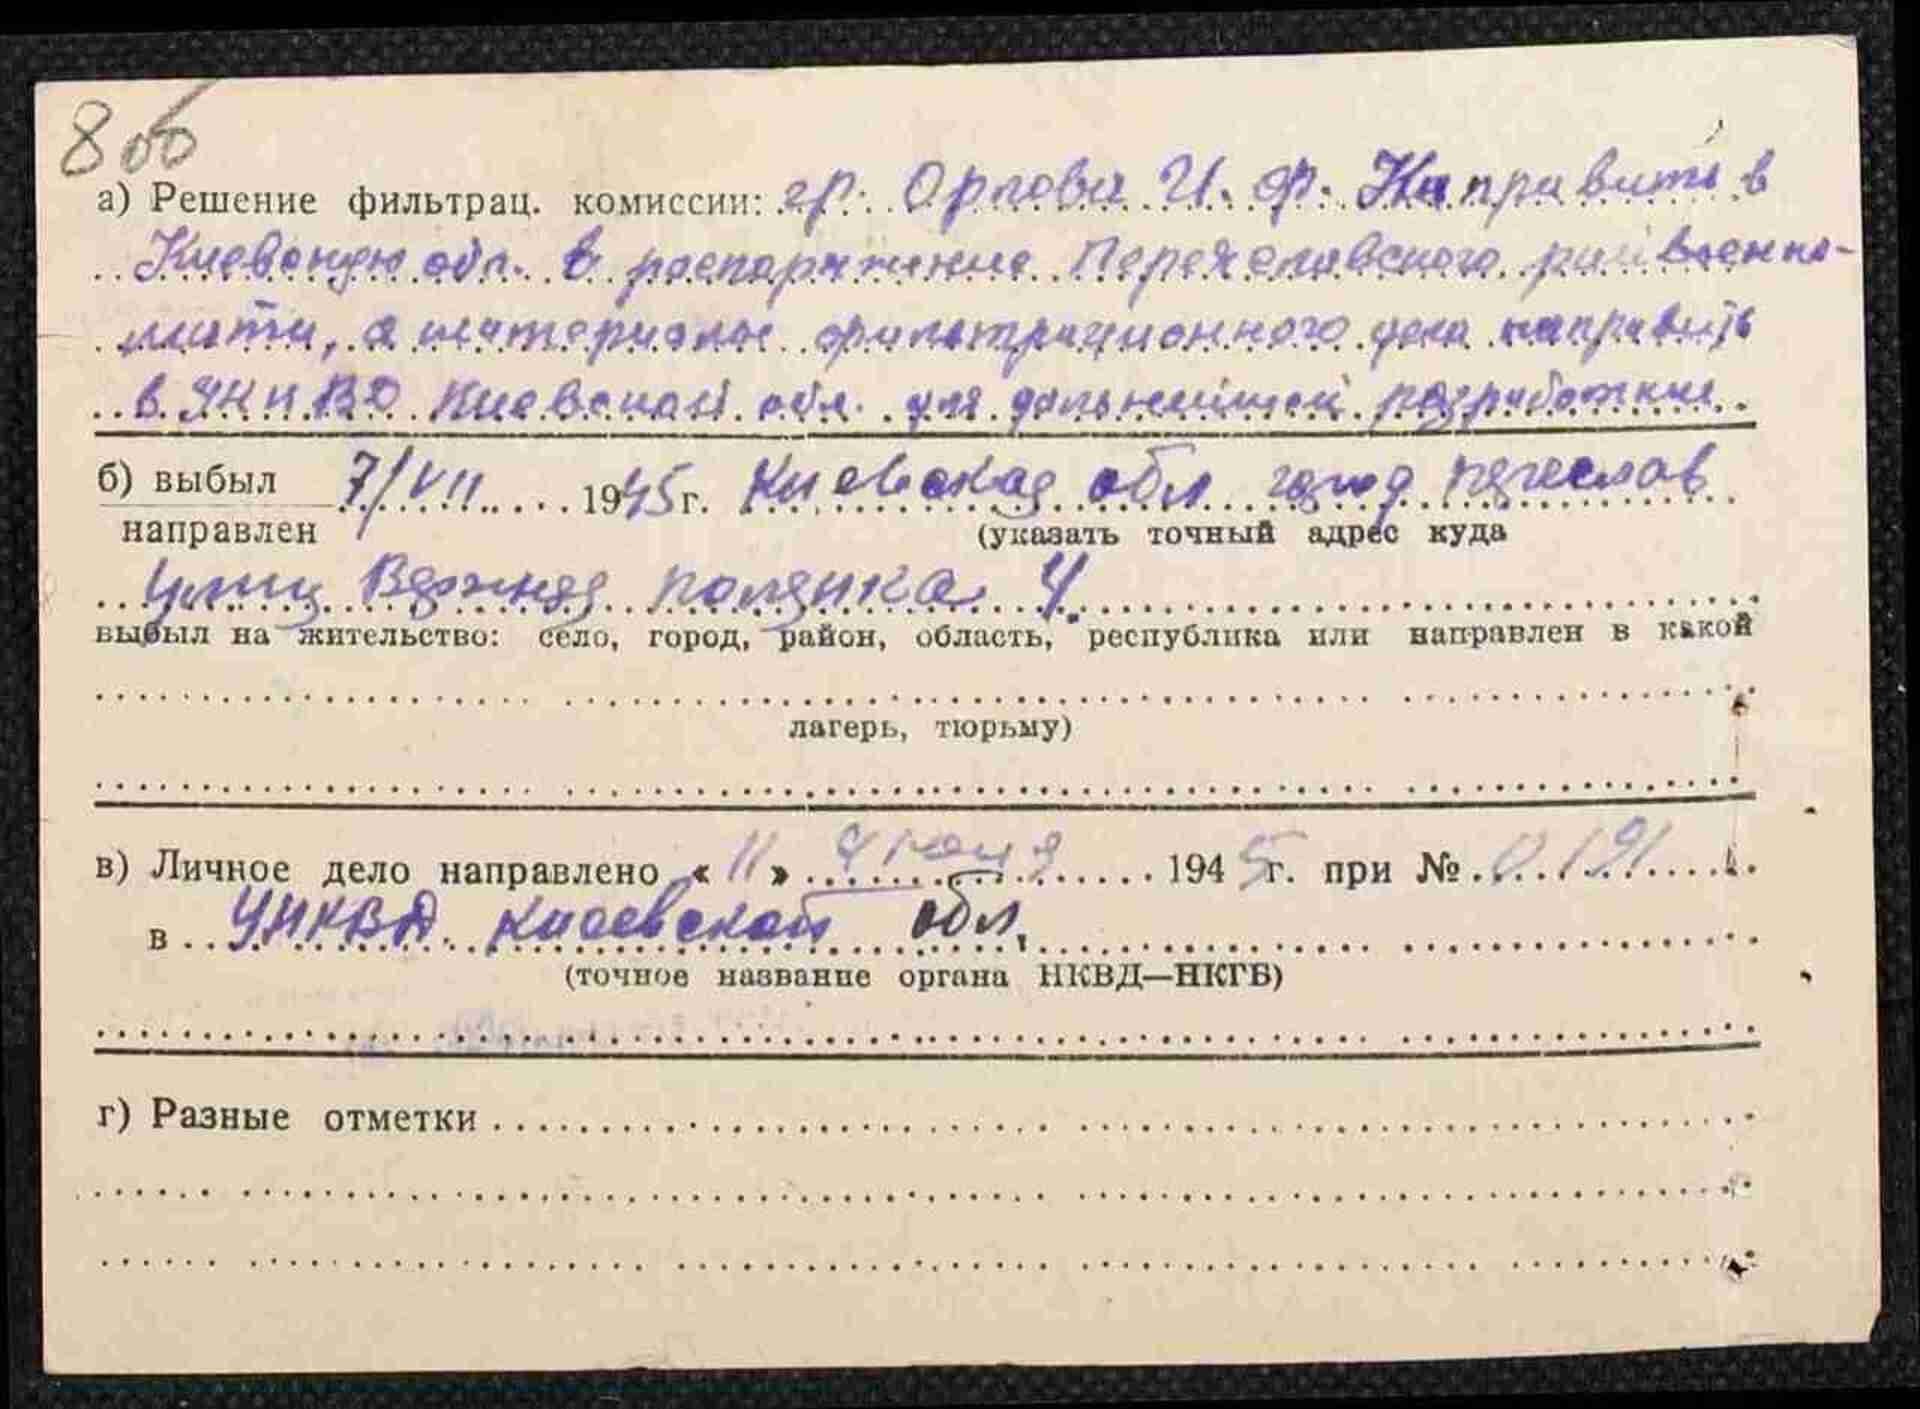 8об
а) Решение фильтрац. комиссии: гр. Орлова И. Ф. Направить в
Киевскую обл. в распоряжение Переяславского райвоенко-
мата, а материалы фильтрационного дела направить
в УНКВД Киевской обл. для дальнейшей разработки.
б) выбыл 7/VII 1945 г. Киевская обл город переслав
направлен (указать точный адрес куда
улиц Верхняя 4.
выбыл на жительство: село, город, район, область, республика или направлен в какой
лагерь, тюрьму)
в) Личное дело направлено « 11 » 1945 г. при № 0191
в УНКВД Киевской обл.
(точное название органа НКВД—НКГБ)
г) Разные отметки